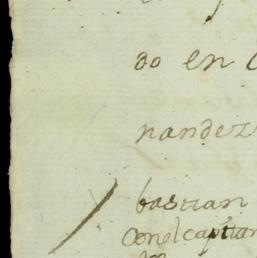 do en
nandez
bastian
conel capitan